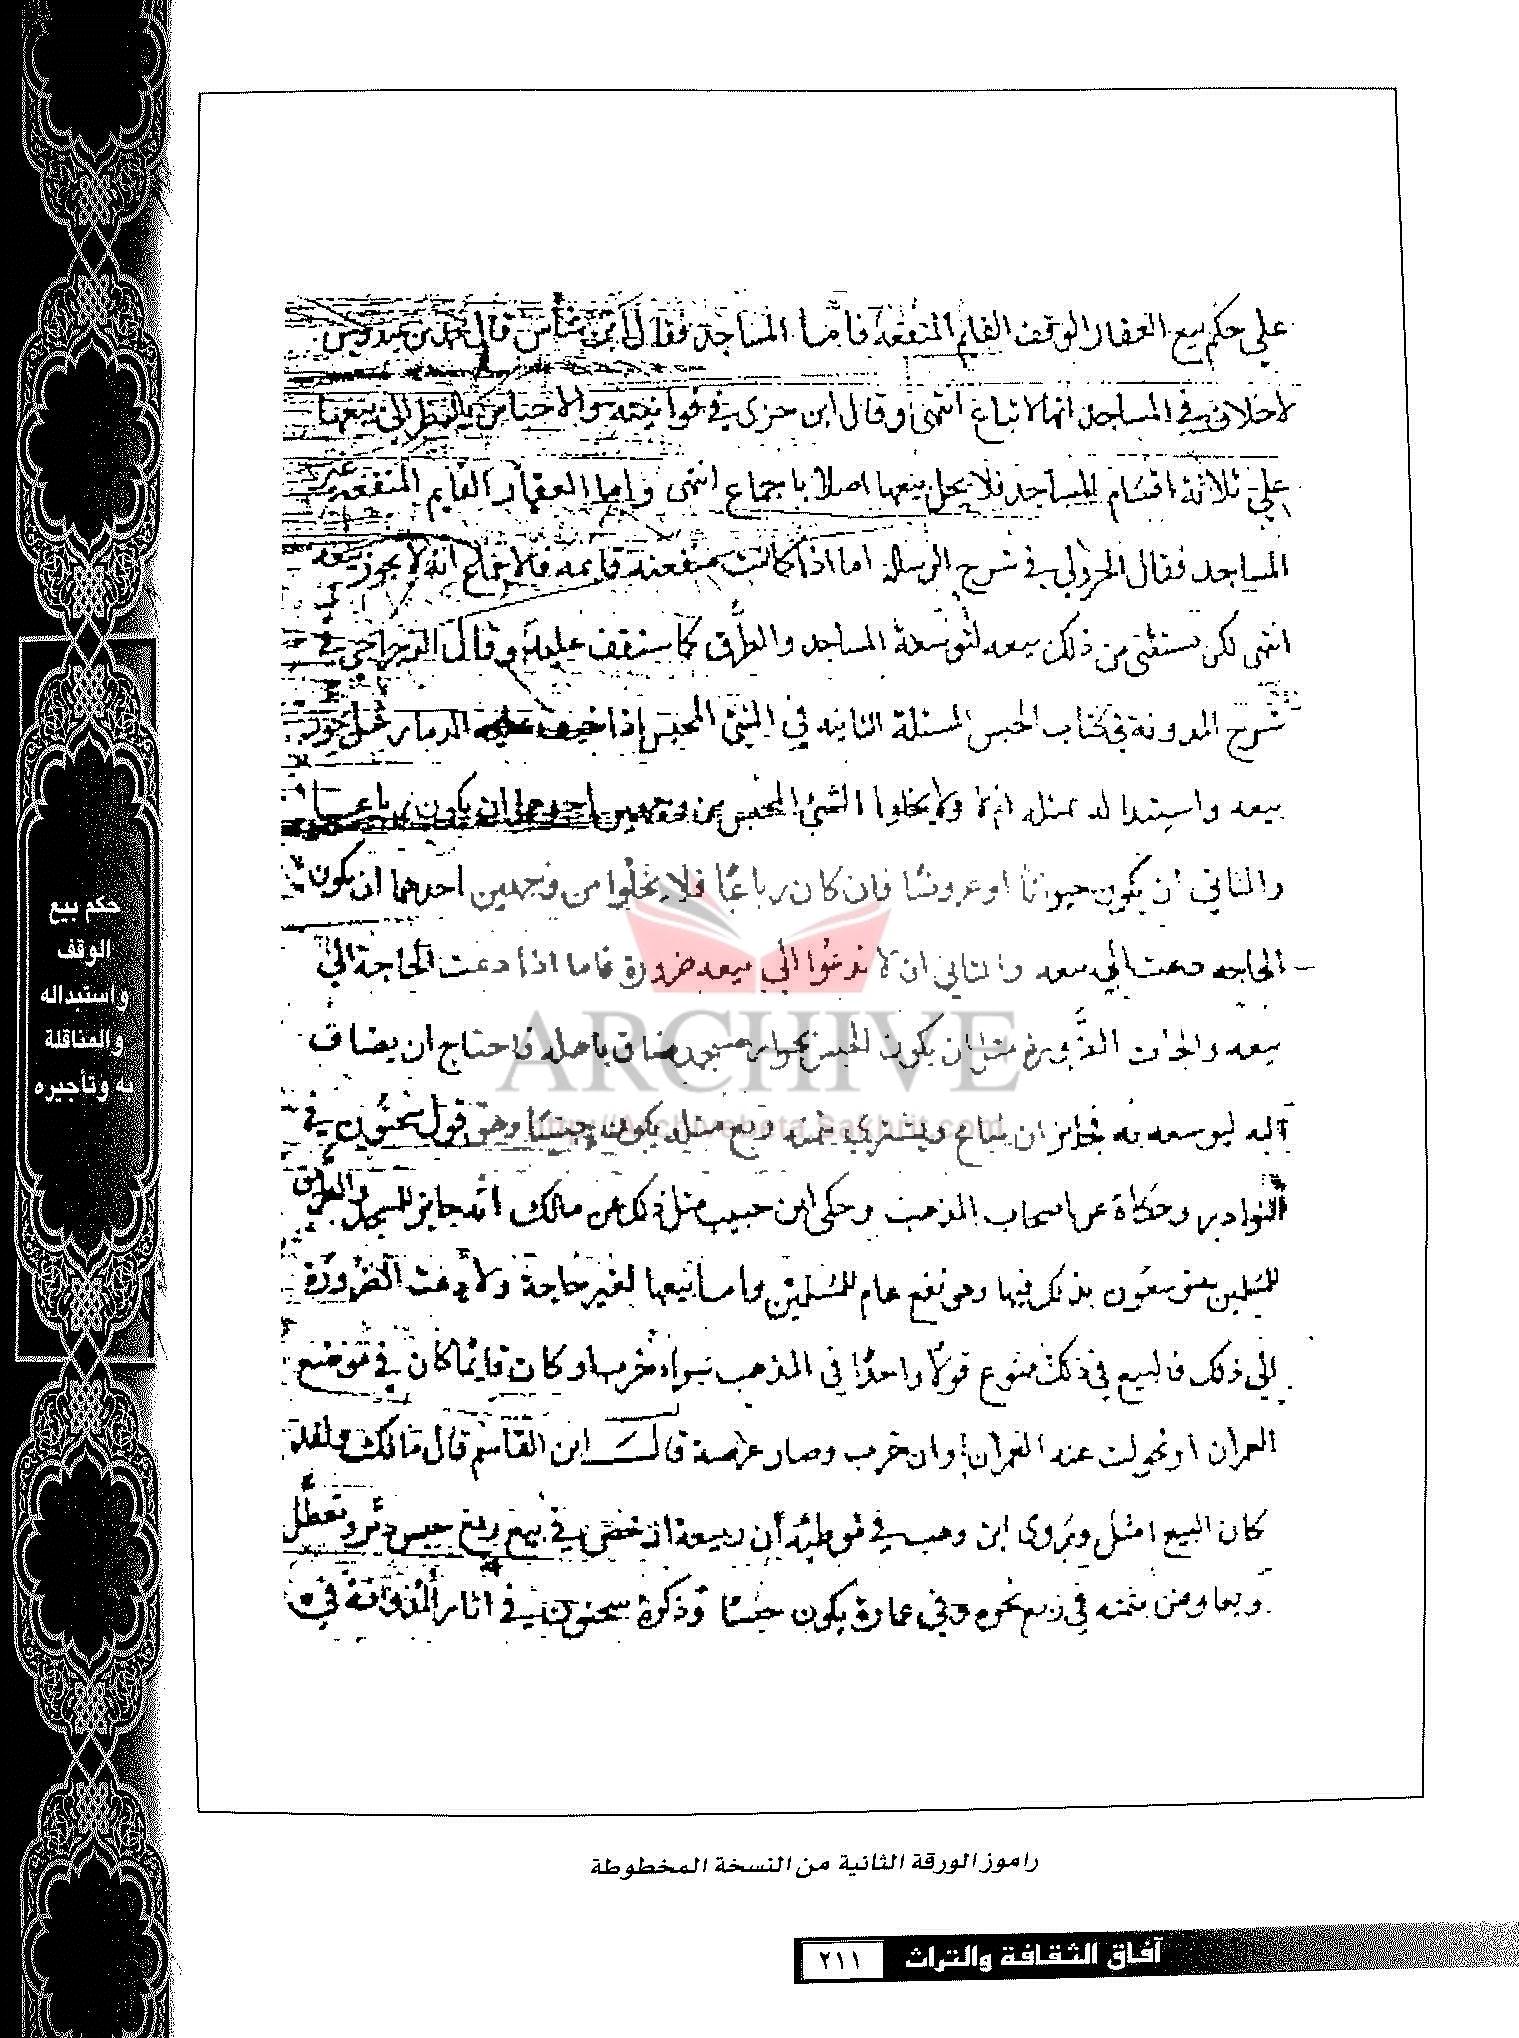 علي حكم بيع العقار الوقف القايم المنفعة فاما المساجد فقال ابن شاس قال محمد بن عبدوس
لاخلاف في المساجد انها لا تباع انتهى وقال ابن جزى في قوانينه والاحباس بالنظر الى بيعها
على ثلاثة اقسام المساجد فلا يحل بيعها اصلا باجماع انتهى واما العقار القايم المنفعة غير
المساجد فقال الجزولي في شرح الرسالة اما اذا كانت منفعته قايمه فلا انه لا يجوز بيعه
انتهى لكن يستثنى من ذلك بيعه لتوسعة المساجد والطرق كما ستقف عليه وقال الرجراجي في
شرح المدونة في كتاب الحبس المسئلة الثانيه في الشئ المحبس اذا خيف عليه الدمار هل يجوز
بيعه واستبداله بمثله ام لا ولا يخلوا الشئ المحبس من وجهين احدهما ان يكون رباعا
والثاني ان يكون حيوانا او عروضا فان كان رباعًا فلا يخلوا من وجهين احدهما ان يكون
الحاجه دعت الي بيعه والثاني ان لا تدعوا الي بيعه ضرورة فاما اذا دعت الحاجة الي
بيعه مثل ان يكون الحبس بجوار مسجد ضاق باهله فاحتاج ان يضاف
اليه ليوسعه به فجايز ان يباع ويشترى بثمنه ربع مثله يكون حبسا وهو قول سحنون في
النوادر وحكاة عن اصحاب المذهب وحكى ابن حبيب مثل ذلك عن مالك انه جايز للمسجد والطرق
للمسلمين يتوسعون بذلك فيها وهو نفع عام للمسلمين واما بيعها لغير حاجة ولا دعت الضرورة
الي ذلك فالبيع في ذلك ممنوع قولا واحدا في المذهب سواء خرب او كان قايما كان في موضع
العمران او تحولت عنه العمران وان خرب وصار عرصة قال ابن القاسم قال مالك ولقد
كان البيع امثل ويروى ابن وهب في موطئه أن ربيعة ارخص في بيع ربع حبس دثر وتعطل
ويعاوض بثمنه في ربع نحوه وفي عمارة يكون حبسا وذكرة سحنون في اثار المدوانة في
حكم بيع
الوقف
واستبداله
والمناقلة
به وتأجيره
ARCHIVE
http://Archivebeta.Sakhrit.com
راموز الورقة الثانية من النسخة المخطوطة
آفاق الثقافة والتراث ٢١١